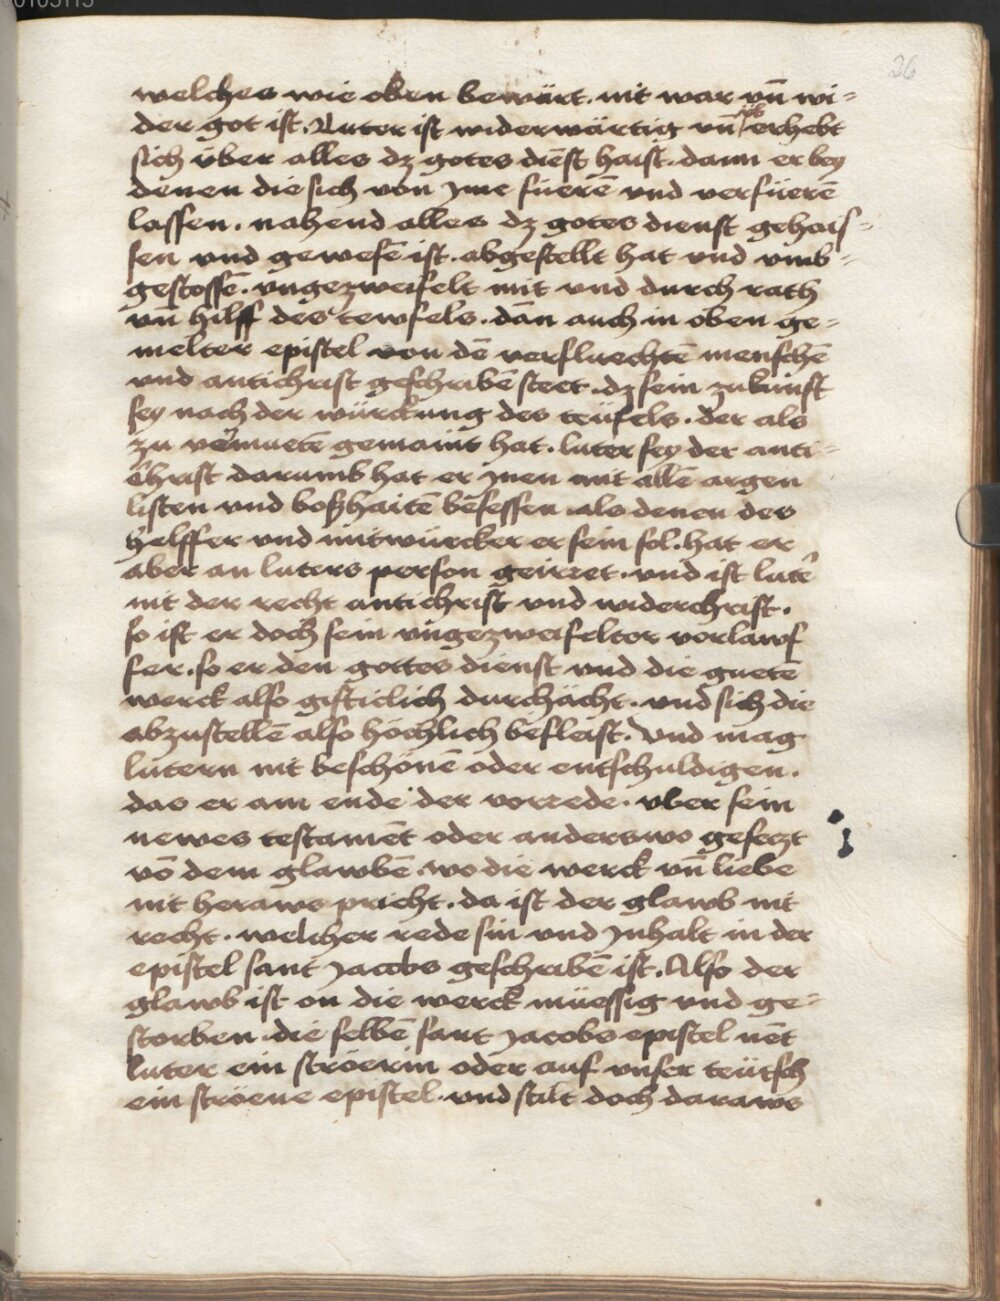 26
welches wie oben bewärt. nit war vn̄ wi-
der got ist. Luter ist widerwärtig vn̄ erhebt
sich über alles dz gotes dienst haist. dann er bey
denen die sich von jme füerē vnd verfüerē
lassen. nahend alles dz gotes dienst gehais-
sen vnd gewesē ist. abgestellt hat vnd vmb-
gestossē. vngezweifelt mit vnd durch rath
vn̄ hilff des tewfels. dān auch in oben ge-
melter epistel von dē verfluechtē menschē
vnd antichrist geschribē steet. dz sein zukunft
sey nach der würckung des teüfels. der als
zu vermuetē gemaint hat. luter sey der anti-
christ darumb hat er jnen mit allē argen
listen vnd boßhaitē besessen als denen des
helffer vnd mitwürcker er sein sol. hat er
aber an luters person geirret. vnd ist lute᷑
nit der recht antichrist vnd widerchrist.
so ist er doch sein vngezweifelter vorlawf
fer. so er den gottes dienst vnd die guetē
werck also gifticlich durchächt. vnd sich die
abzustellē also höchlich befleist. Vnd mag
lutern nit beschönē oder entschuldigen.
das er am ende der vorrede. vber sein
newes testamēt oder anderswo gesetzt
vō dem glawbē. wo die werck vn̄ liebe
nit heraws pricht. da ist der glawb nit
recht. welcher rede sin vnd jnhalt in der
epistel sant jacobs geschribē ist. Also der
glawb ist on die werck müessig vnd ge-
storben. die selbē sant jacobs epistel nēt
luter ein ströerin oder auf vnser teütsch
ein ströene epistel. vnd stilt doch daraws